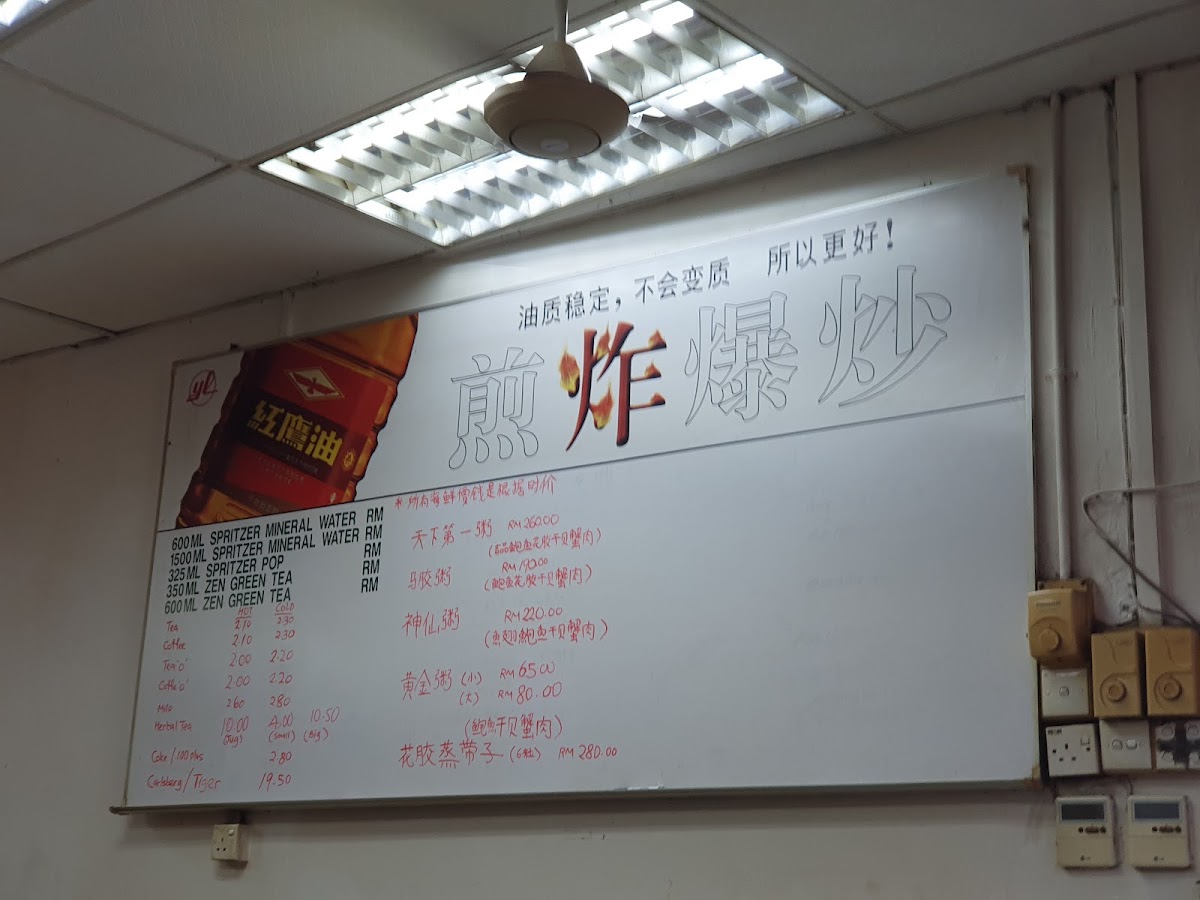 油质稳定，不会变质 所以更好！
煎炸爆炒
yl
红鹰油
600ML SPRITZER MINERAL WATER RM
1500ML SPRITZER MINERAL WATER RM
325ML SPRITZER POP RM
350ML ZEN GREEN TEA RM
600ML ZEN GREEN TEA RM
HOT COLD
Tea 2.10 2.30
Coffee 2.10 2.30
Tea'o' 2.00 2.20
Coffee'o' 2.00 2.20
Milo 2.60 2.80
Herbal Tea 10.00 4.00 10.50
(Jug) (Small) (Big)
Coke/100 plus 2.80
Carlsberg/Tiger 19.50
*所有海鲜价钱是根据时价
天下第一粥 RM260.00
(鲍鱼花胶干贝蟹肉)
胶粥 RM190.00
(鲍鱼花胶干贝蟹肉)
神仙粥 RM220.00
(鱼翅鲍鱼干贝蟹肉)
黄金粥 (小) RM65.00
(大) RM80.00
(鲍鱼干贝蟹肉)
花胶蒸带子 (6粒) RM280.00
LG